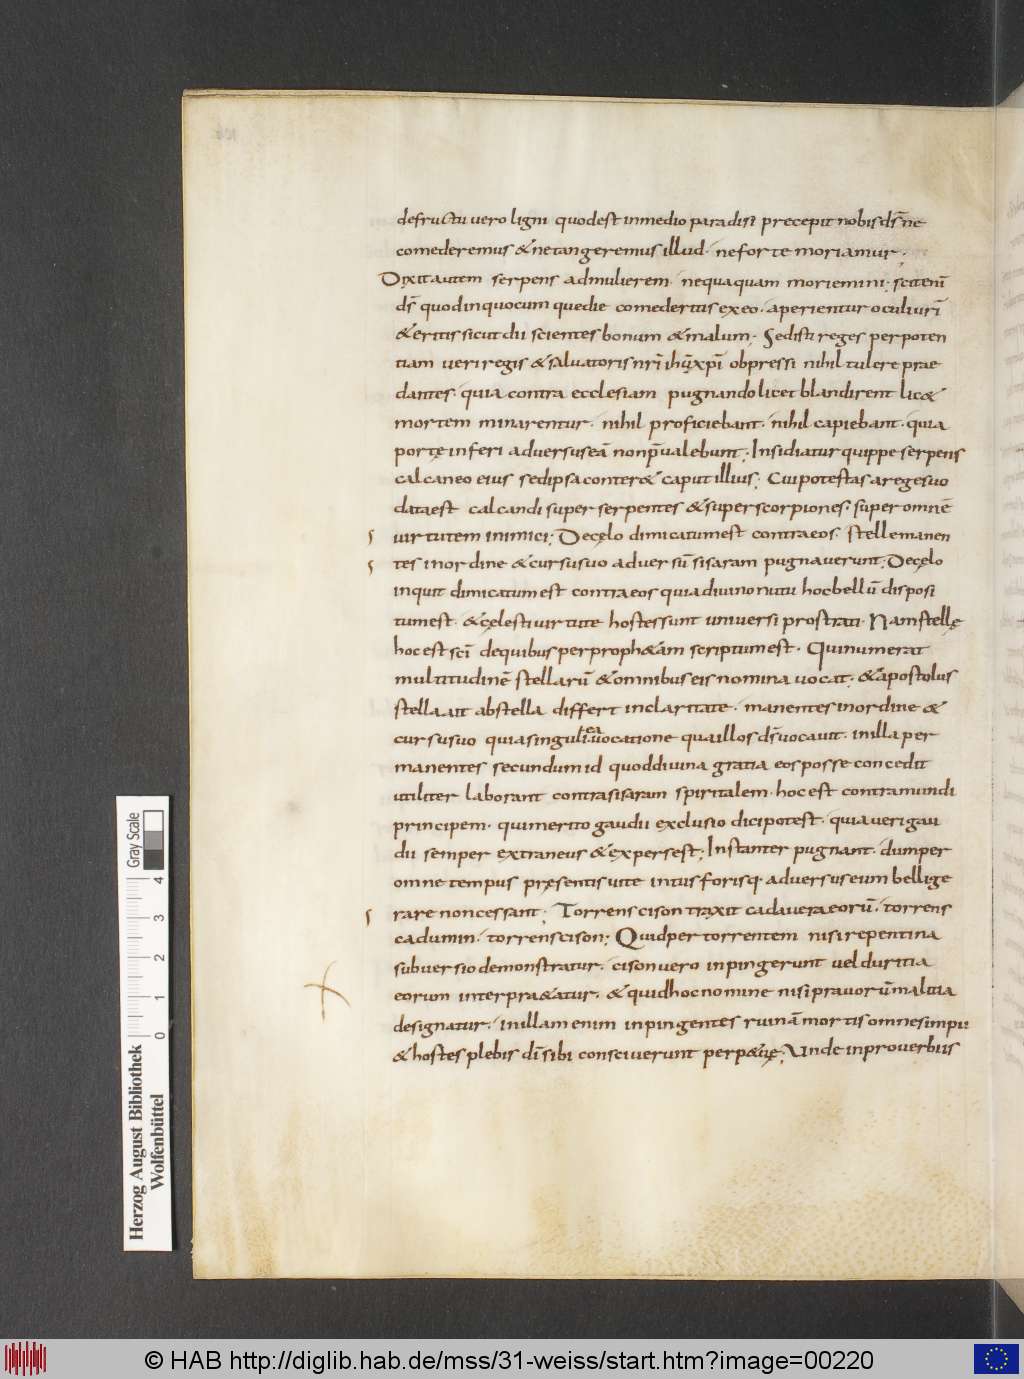 defructu vero ligni quodest inmedio paradisi precepit nobis dſ̄ ne
comederemus & netangeremus illud · neforte moriamur ·
Dixit autem serpens admulierem · nequaquam moriemini ; scit enī
dſ̄ quod inquocum quedie comederitis exeo · aperientur oculi urī
& eritis sicut dii scientes bonum & malum ; Sed isti reges per poten
tiam veri regis & saluatoris nr̄i ihū xp̄i obpressi nihil tulere prae
dantes · quia contra ecclesiam pugnando licet blandirent lic&
mortem minarentur · nihil proficiebant · nihil capiebant · quia
portę inferi aduersus eā non p̄ualebunt ; Insidiatur quippe serpens
calcaneo eius sed ipsa conter& caput illius ; Cui potestas a rege suo
data est calcandi super serpentes & super scorpiones · super omnē
uirtutem inimici ; De cęlo dimicatum est contra eos · stelle manen
tes inordine & cursu suo aduersū sisaram pugnauerunt ; De cęlo
inquit dimicatum est contra eos quia diuino nutu hoc bellū disposi
tum est · & cęlesti uirtute hostes sunt uniuersi prostrati · Nam stellę
hoc est scī de quibus per proph&am scriptum est · Qui numerat
multitudinē stellarū & omnibus eis nomina uocat · & apostolus
stella ait ab stella differt in claritate · manentes inordine &
cursu suo quia singuli ea uocatione qua illos dſ̄ uocauit · in illa per
manentes secundum id quod diuina gratia eos posse concedit
utiliter laborant contra sisaram spiritalem · hoc est contra mundi
principem · qui merito gaudii exclusio dici potest · quia ueri gau
dii semper extraneus & expers est ; Instanter pugnant · dum per
omne tempus pręsentis uite intus forisq · aduersus eum bellige
rare non cessant ; Torrens cison traxit cadauera eorū · torrens
cadumin · torrens cison ; Quid per torrentem nisi repentina
subuersio demonstratur · cison uero inpingerunt uel duritia
eorum interpra&atur · & quid hoc nomine nisi prauorū malitia
designatur · in illam enim inpingentes ruinā mortis omnes impii
& hostes plebis dī sibi consciuerunt perp&uę ; Unde in prouerbiis
Herzog August Bibliothek
Wolfenbüttel
Gray Scale
0 1 2 3 4
© HAB http://diglib.hab.de/mss/31-weiss/start.htm?image=00220